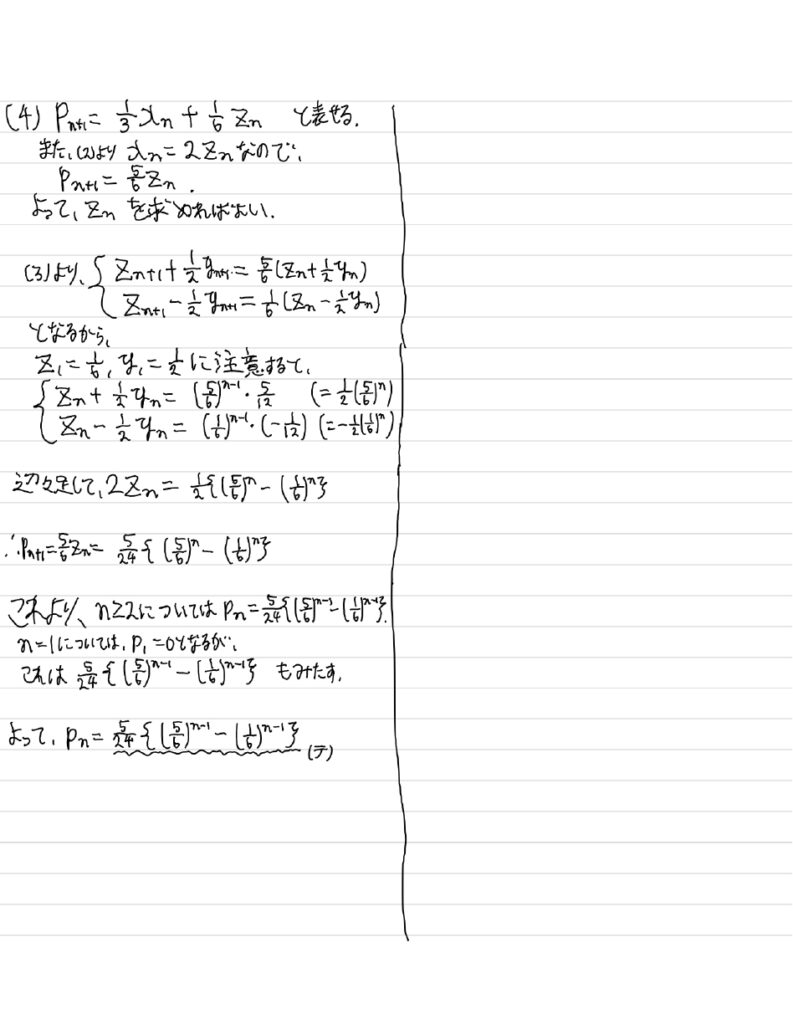 (4) P_{n+1} = 1/3 x_n + 1/6 z_n と表せる.
また, (2)より x_n = 2z_n なので,
P_{n+1} = 5/6 z_n .
よって, z_n を求めればよい.
(3)より, { z_{n+1} + 1/2 y_{n+1} = 5/6 (z_n + 1/2 y_n)
z_{n+1} - 1/2 y_{n+1} = 1/6 (z_n - 1/2 y_n)
となるから,
z_1 = 1/6, y_1 = 1/2 に注意すると,
{ z_n + 1/2 y_n = (5/6)^{n-1} · 5/12 (= 1/2 (5/6)^n)
z_n - 1/2 y_n = (1/6)^{n-1} · (-1/12) (= -1/2 (1/6)^n)
辺々足して, 2z_n = 1/2 {(5/6)^n - (1/6)^n}
∴ P_{n+1} = 5/6 z_n = 5/24 { (5/6)^n - (1/6)^n }
これより, n≧2については P_n = 5/24 {(5/6)^{n-1} - (1/6)^{n-1}}.
n=1については, P_1 = 0となるが,
これは 5/24 { (5/6)^{n-1} - (1/6)^{n-1} } もみたす.
よって, P_n = 5/24 { (5/6)^{n-1} - (1/6)^{n-1} } (テ)